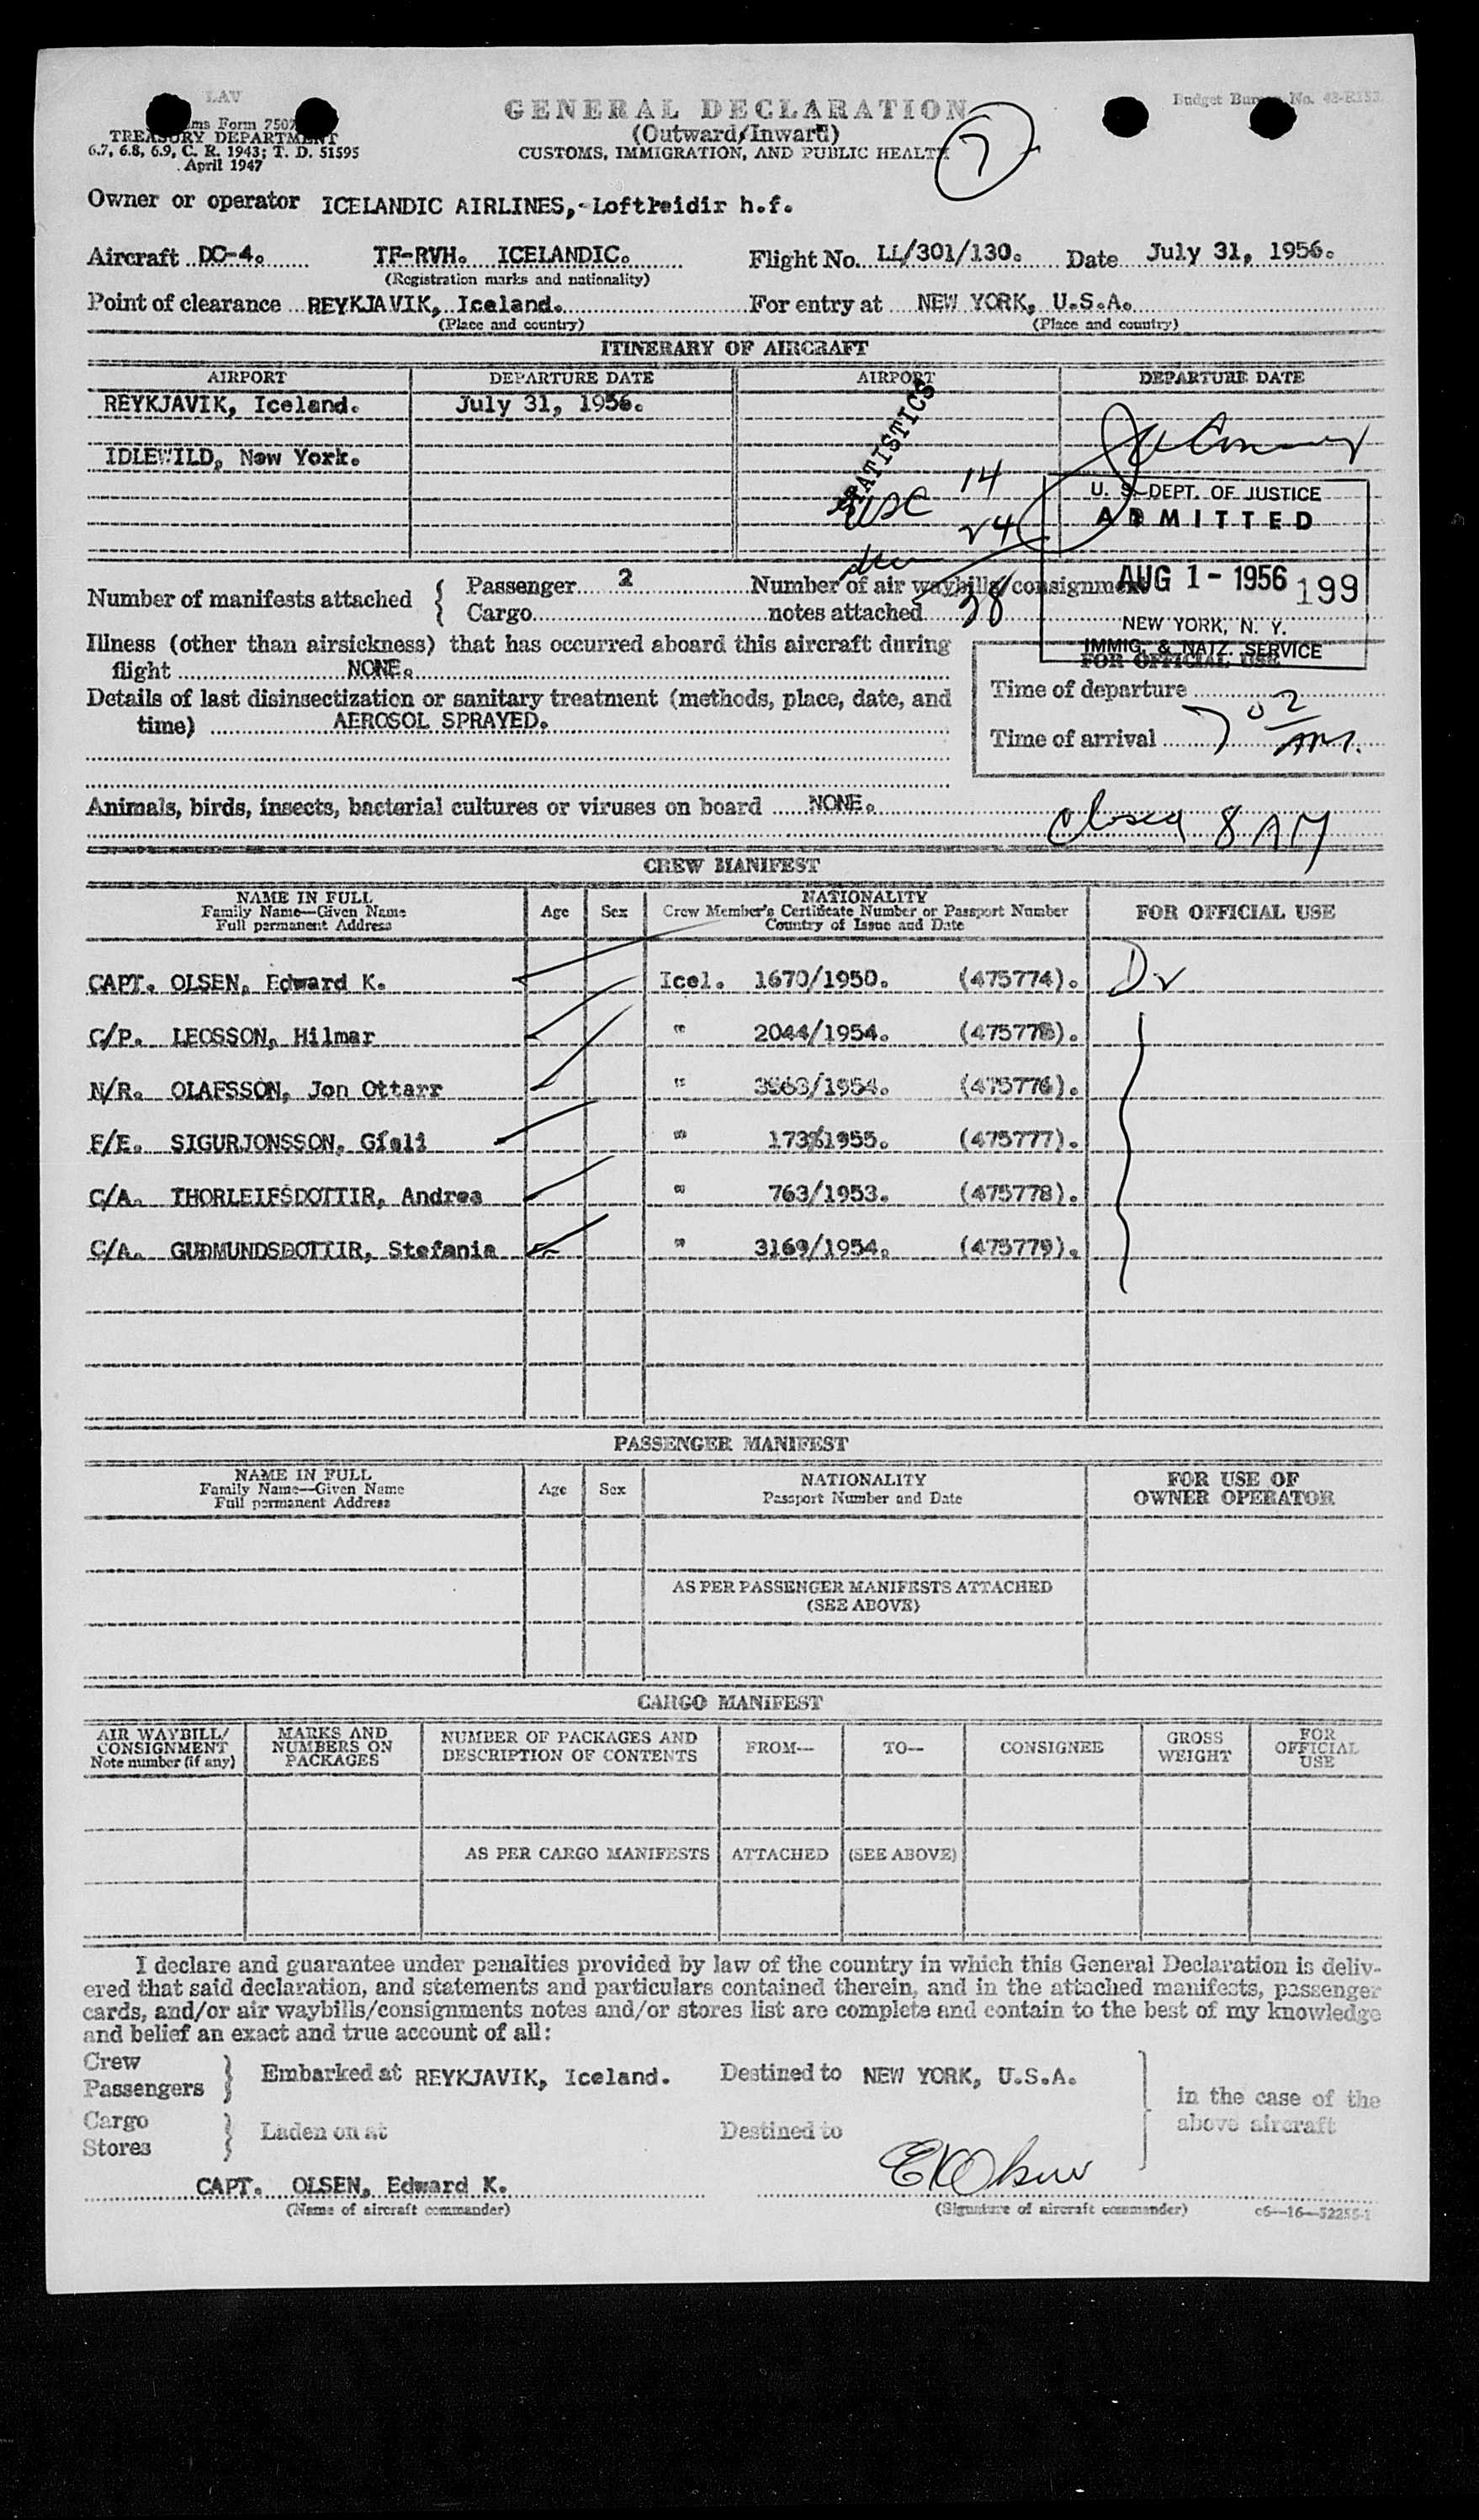 LAV
ms Form 7507
TREASURY DEPARTMENT
6.7, 6.8, 6.9, C. R. 1943; T. D. 51595
April 1947
GENERAL DECLARATION
(Outward/Inward)
CUSTOMS, IMMIGRATION, AND PUBLIC HEALTH
7
Budget Bureau No.
Owner or operator ICELANDIC AIRLINES,-Loftleidir h.f.
Aircraft DC-4. TF-RVH. ICELANDIC. Flight No. LL/301/130. Date July 31, 1956.
(Registration marks and nationality)
Point of clearance REYKJAVIK, Iceland. For entry at NEW YORK, U.S.A.
(Place and country) (Place and country)
ITINERARY OF AIRCRAFT
AIRPORT DEPARTURE DATE AIRPORT DEPARTURE DATE
REYKJAVIK, Iceland. July 31, 1956.
IDLEWILD, New York.
STATISTICS
USC 14
24
38
U. S. DEPT. OF JUSTICE
ADMITTED
AUG 1 - 1956 199
NEW YORK, N. Y.
IMMIG. & NATZ. SERVICE
Number of manifests attached { Passenger 2 Number of air waybills/consignment
Cargo notes attached
Illness (other than airsickness) that has occurred aboard this aircraft during
flight NONE.
FOR OFFICIAL USE
Details of last disinsectization or sanitary treatment (methods, place, date, and
time) AEROSOL SPRAYED.
Time of departure
Time of arrival 7 02 AM.
Animals, birds, insects, bacterial cultures or viruses on board NONE.
Closed 8 AM
CREW MANIFEST
NAME IN FULL
Family Name—Given Name
Full permanent Address
Age Sex
NATIONALITY
Crew Member's Certificate Number or Passport Number
Country of Issue and Date
FOR OFFICIAL USE
CAPT. OLSEN, Edward K. Icel. 1670/1950. (475774).
C/P. LEOSSON, Hilmar " 2044/1954.
N/R. OLAFSSON, Jon Ottarr " (475776).
F/E. SIGURJONSSON, Gísli " (475777).
C/A. THORLEIFSDOTTIR, Andrea " 763/1953. (475778).
C/A. GUDMUNDSDOTTIR, Stefania " 3169/1954. (475779).
PASSENGER MANIFEST
NAME IN FULL
Family Name—Given Name
Full permanent Address
Age Sex
NATIONALITY
Passport Number and Date
FOR USE OF
OWNER OPERATOR
AS PER PASSENGER MANIFESTS ATTACHED
(SEE ABOVE)
CARGO MANIFEST
AIR WAYBILL/
CONSIGNMENT
Note number (if any)
MARKS AND
NUMBERS ON
PACKAGES
NUMBER OF PACKAGES AND
DESCRIPTION OF CONTENTS
FROM— TO— CONSIGNEE
GROSS
WEIGHT
FOR
OFFICIAL
USE
AS PER CARGO MANIFESTS ATTACHED (SEE ABOVE)
I declare and guarantee under penalties provided by law of the country in which this General Declaration is deliv-
ered that said declaration, and statements and particulars contained therein, and in the attached manifests, passenger
cards, and/or air waybills/consignments notes and/or stores list are complete and contain to the best of my knowledge
and belief an exact and true account of all:
Crew
Passengers } Embarked at REYKJAVIK, Iceland. Destined to NEW YORK, U.S.A.
Cargo
Stores } Laden on at Destined to
in the case of the
above aircraft
CAPT. OLSEN, Edward K. EKOlsen
(Name of aircraft commander) (Signature of aircraft commander) c6—16—52255-1